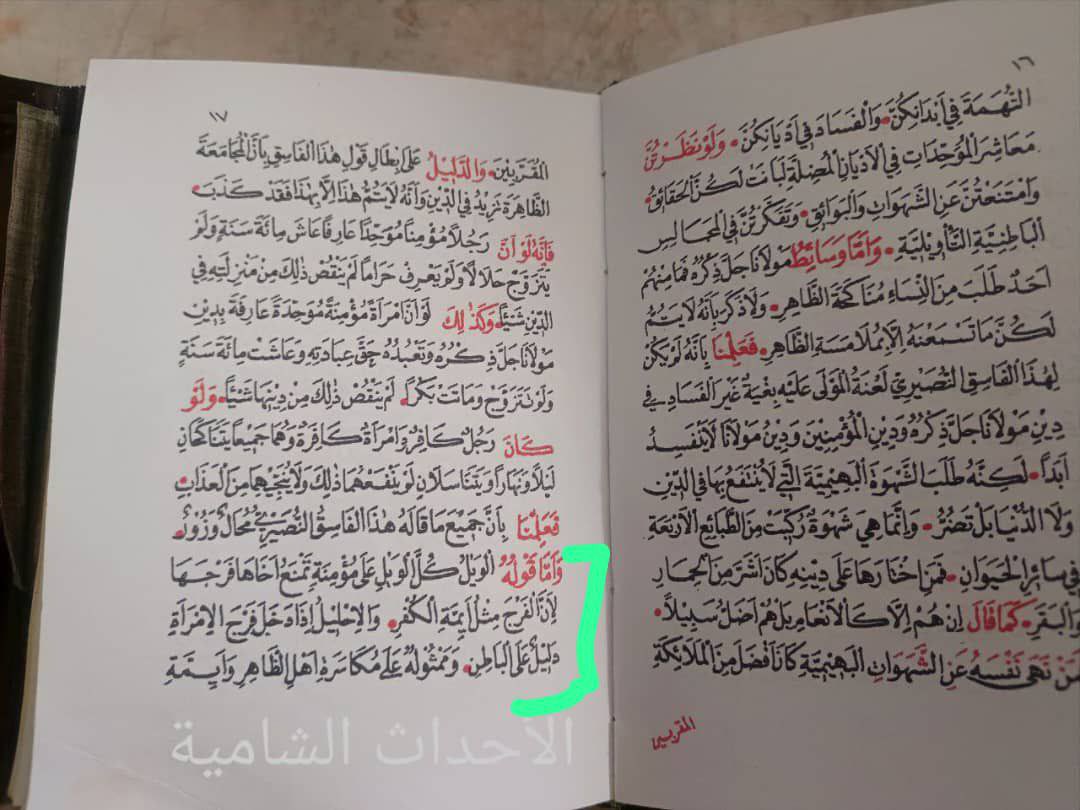 ١٦
التُّهَمَةَ فِي أَبْدَانِكُنَّ وَالْفَسَادَ فِي أَدْيَانِكُنَّ وَلَوْ نَظَرْتُنَّ
مَعَاشِرَ الْمُوَحِّدَاتِ فِي الْأَدْيَانِ الْمُضِلَّةِ لَبَانَتْ لَكُنَّ الْحَقَائِقُ
وَامْتَنَعْتُنَّ عَنِ الشَّهَوَاتِ وَالْبَوَائِقِ وَتَفَكَّرْتُنَّ فِي الْمَجَالِسِ
الْبَاطِنِيَّةِ التَّأْوِيلِيَّةِ وَأَمَّا وَسَائِطُ مَوْلَانَا جَلَّ ذِكْرُهُ فَمَا مِنْهُمْ
أَحَدٌ طَلَبَ مِنَ النِّسَاءِ مُنَاكَحَةَ الظَّاهِرِ وَلَا ذَكَرَ بِأَنَّهُ لَا يَتِمُّ
لَكُنَّ مَا تَسْمَعْنَهُ إِلَّا بِمُلَامَسَةِ الظَّاهِرِ فَعَلِمْنَا بِأَنَّهُ لَمْ يَكُنْ
لِهٰذَا الْفَاسِقِ النُّصَيْرِيِّ لَعْنَةُ الْمَوْلَى عَلَيْهِ بِغْيَةٌ غَيْرَ الْفَسَادِ فِي
دِينِ مَوْلَانَا جَلَّ ذِكْرُهُ وَدِينِ الْمُؤْمِنِينَ وَدِينُ مَوْلَانَا لَا يَنْفَسِدُ
أَبَدًا لَكِنَّهُ طَلَبَ الشَّهْوَةَ الْبَهِيمِيَّةَ الَّتِي لَا يُنْتَفَعُ بِهَا فِي الدِّينِ
وَلَا الدُّنْيَا بَلْ تَضُرُّ وَإِنَّمَا هِيَ شَهْوَةٌ رُكِّبَتْ مِنَ الطَّبَائِعِ الْأَرْبَعَةِ
فِي سَائِرِ الْحَيَوَانِ فَمَنِ اخْتَارَهَا عَلَى دِينِهِ كَانَ أَشَرَّ مِنَ الْحِمَارِ
وَالْبَقَرِ كَمَا قَالَ إِنْ هُمْ إِلَّا كَالْأَنْعَامِ بَلْ هُمْ أَضَلُّ سَبِيلًا
فَمَنْ نَهَى نَفْسَهُ عَنِ الشَّهَوَاتِ الْبَهِيمِيَّةِ كَانَ أَفْضَلَ مِنَ الْمَلَائِكَةِ
المقربين
١٧
الْمُقَرَّبِينَ وَالدَّلِيلُ عَلَى إِبْطَالِ قَوْلِ هٰذَا الْفَاسِقِ بِأَنَّ الْمُجَامَعَةَ
الظَّاهِرَةَ تَزِيدُ فِي الدِّينِ وَأَنَّهُ لَا يَتِمُّ هٰذَا إِلَّا بِهٰذَا فَقَدْ كَذَبَ
فَإِنَّهُ لَوْ أَنَّ رَجُلًا مُؤْمِنًا مُوَحِّدًا عَارِفًا عَاشَ مِائَةَ سَنَةٍ وَلَمْ
يَتَزَوَّجْ حَلَالًا وَلَمْ يَعْرِفْ حَرَامًا لَمْ يَنْقُصْ ذٰلِكَ مِنْ مَنْزِلَتِهِ فِي
الدِّينِ شَيْئًا وَكَذٰلِكَ لَوْ أَنَّ امْرَأَةً مُؤْمِنَةً مُوَحِّدَةً عَارِفَةً بِدِينِ
مَوْلَانَا جَلَّ ذِكْرُهُ وَتَعْبُدُهُ حَقَّ عِبَادَتِهِ وَعَاشَتْ مِائَةَ سَنَةٍ
وَلَمْ تَتَزَوَّجْ وَمَاتَتْ بِكْرًا لَمْ يَنْقُصْ ذٰلِكَ مِنْ دِينِهَا شَيْئًا وَلَوْ
كَانَ رَجُلٌ كَافِرٌ وَامْرَأَةٌ كَافِرَةٌ وَهُمَا جَمِيعًا يَتَنَاكَحَانِ
لَيْلًا وَنَهَارًا وَيَتَنَاسَلَانِ لَمْ يَنْفَعْهُمَا ذٰلِكَ وَلَا يُنْجِيهِمَا مِنَ الْعَذَابِ
فَعَلِمْنَا بِأَنَّ جَمِيعَ مَا قَالَهُ هٰذَا الْفَاسِقُ النُّصَيْرِيُّ مُحَالٌ وَزُورٌ
وَأَمَّا قَوْلُهُ الْوَيْلُ كُلُّ الْوَيْلِ عَلَى مُؤْمِنَةٍ تَمْنَعُ أَخَاهَا فَرْجَهَا
لِأَنَّ الْفَرْجَ مِثْلُ أَئِمَّةِ الْكُفْرِ وَالْإِحْلِيلُ إِذَا دَخَلَ فَرْجَ الْإِمْرَأَةِ
دَلِيلٌ عَلَى الْبَاطِنِ وَمَمْثُولُهُ عَلَى مُكَاسَرَةِ أَهْلِ الظَّاهِرِ وَأَيِمَّةِ
الأحداث الشامية